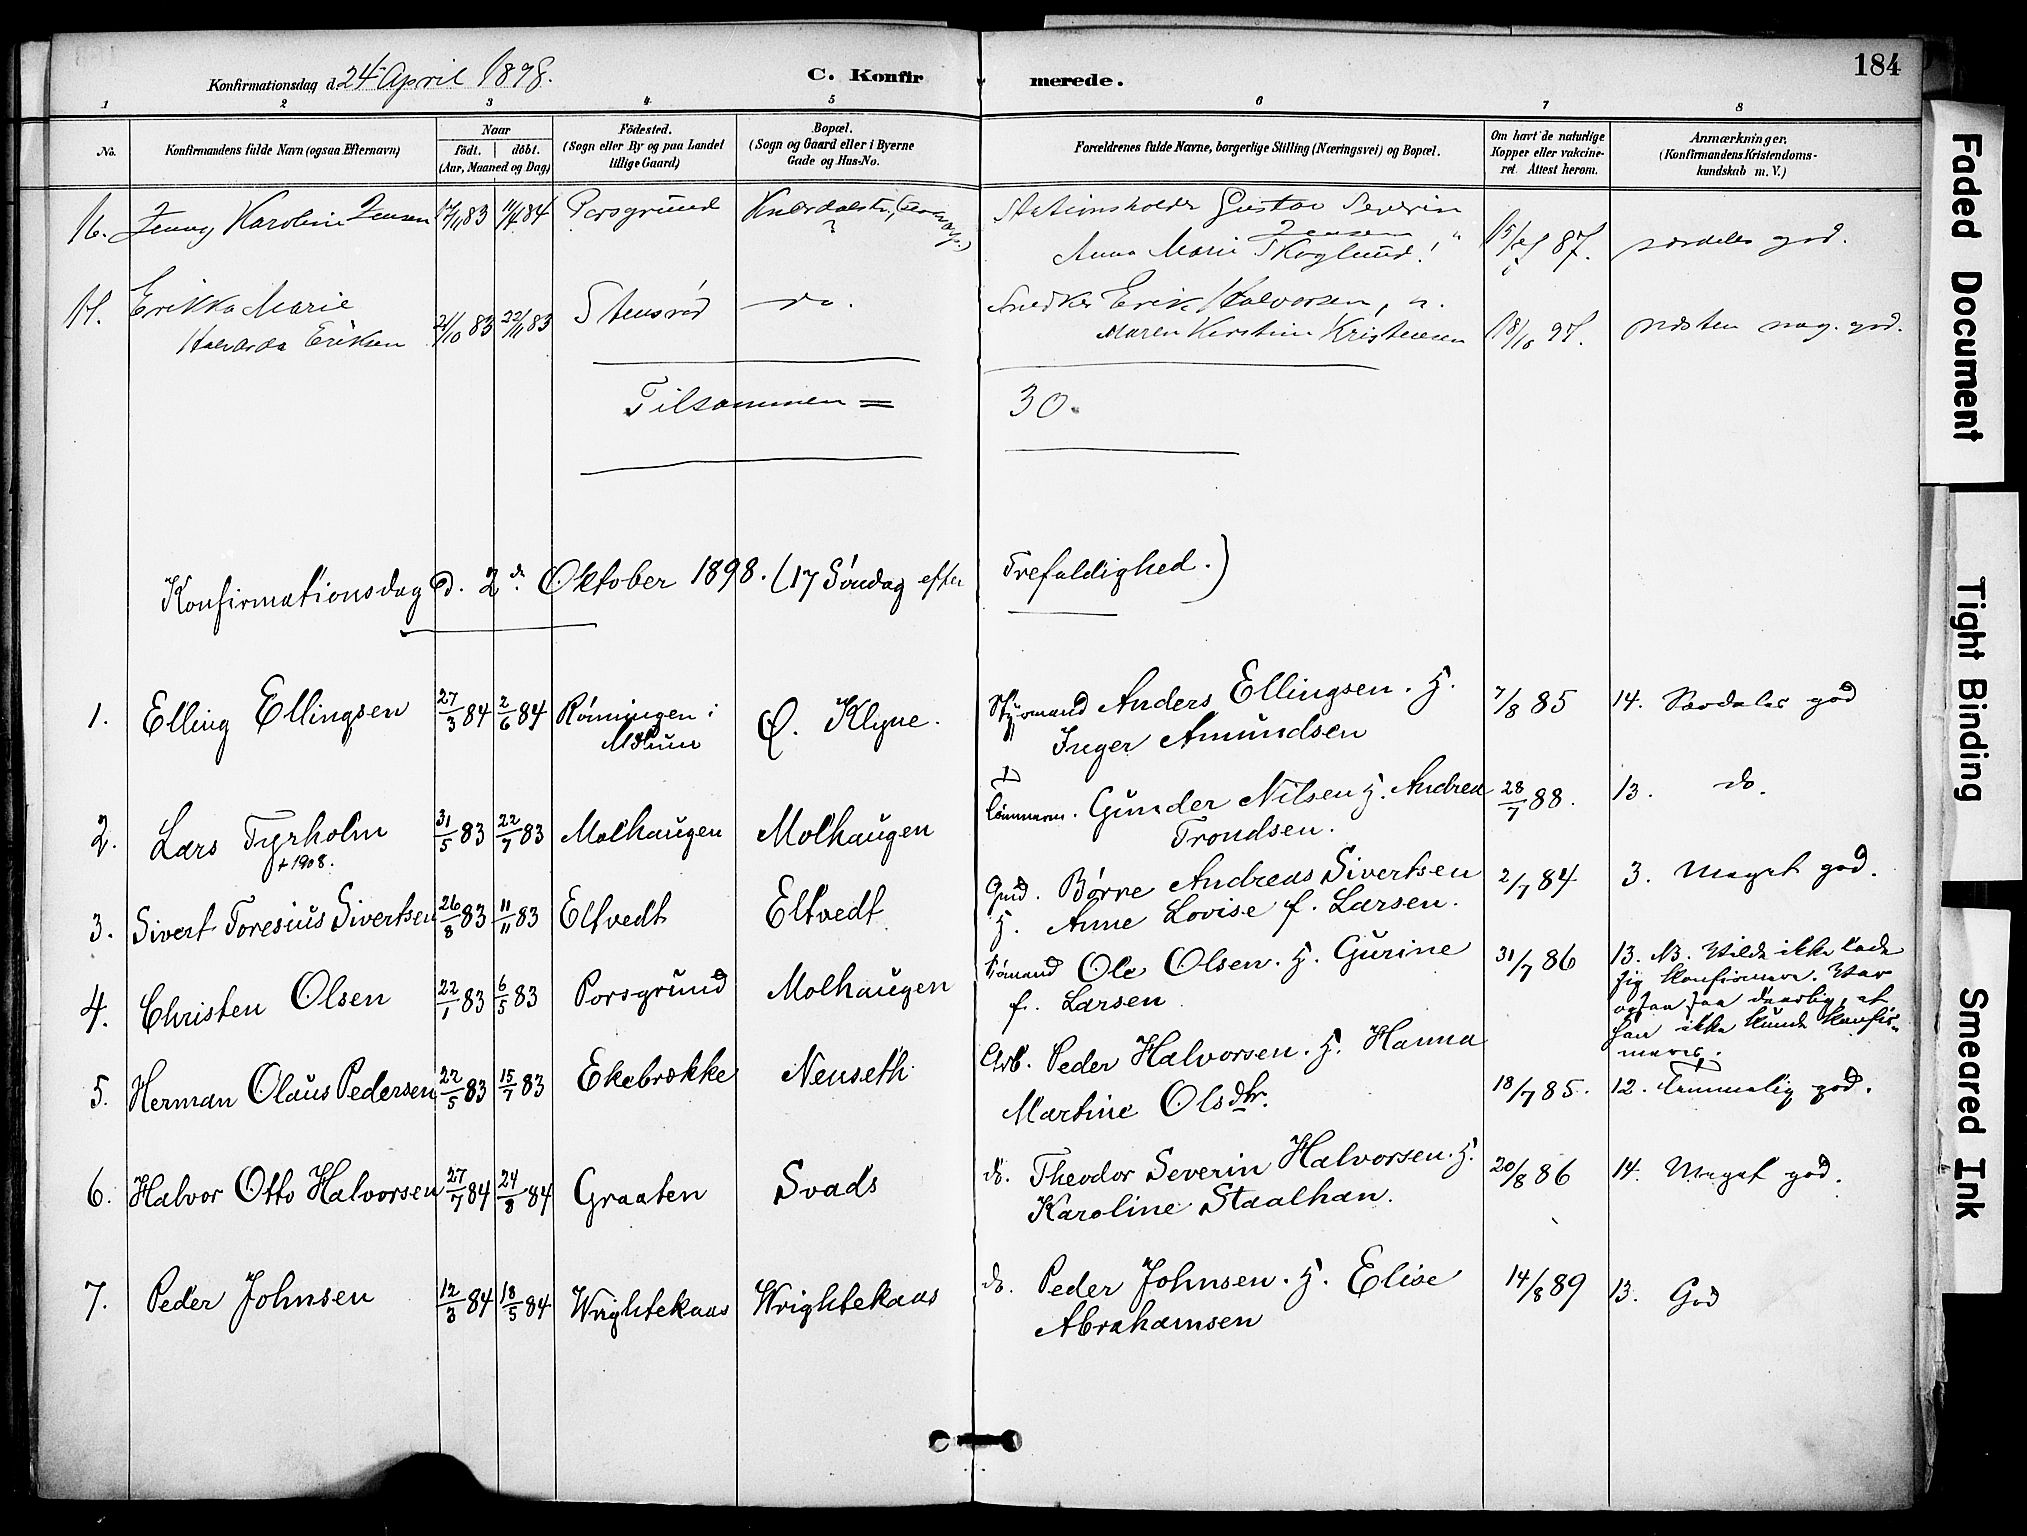 184
Konfirmationsdag d. 24 April 1898.
C. Konfir merede.
1 2 3 4 5 6 7 8
No.
Konfirmandens fulde Navn (ogsaa Efternavn)
Naar
födt. döbt.
(Aar, Maaned og Dag)
Födested.
(Sogn eller By og paa Landet
tillige Gaard)
Bopæl.
(Sogn og Gaard eller i Byerne
Gade og Hus-No.
Forældrenes fulde Navne, borgerlige Stilling (Næringsvei) og Bopæl.
Om havt de naturlige
Kopper eller vakcine-
ret. Attest herom.
Anmærkninger.
(Konfirmandens Kristendoms-
kundskab m. V.)
16. Jenny Karoline Jensen 17/11 83 11/4 84 Porsgrund
Stationsholder Gustav Severin
Jensen
Anna Marie Skoglund! særdeles god.
17. Erikka Marie
Halvarda Eriksen 21/10 83 22/11 83 Stensrød do.
Snedker Erik Halvorsen,
Maren Kirstine Kristensen 18/10 97. næsten meg. god.
Tilsammen = 30.
Konfirmationsdag d. 2den Oktober 1898. (17 Søndag efter Trefoldighed.)
1. Elling Ellingsen 27/3 84 2/6 84 Rønningen i
Mælum Ø. Klyve.
Styrmand Anders Ellingsen. H.
Inger Amundsen 7/8 85 14. Særdeles god
2. Lars Tyrholm 31/5 83 22/7 83 Molhaugen Molhaugen
+ 1908.
Tömmerm. Gunder Nilsen H. Andrea
Trondsen. 28/7 88. 13. do.
3. Sivert Toresius Sivertsen 26/8 83 11/11 83 Eltvedt Eltvedt
Gmd. Børre Andreas Sivertsen
H. Anne Lovise f. Larsen. 2/7 84 3. Meget god.
4. Christen Olsen 22/1 83 6/5 83 Porsgrund Molhaugen
Sömand Ole Olsen. H. Gurine
f. Larsen 31/7 86
13. NB. Vilde ikke lade
sig konfirmere. Var
ogsaa saa daarlig, at
han ikke kunde konfir-
meres.
5. Herman Olaus Pedersen 22/5 83 15/7 83 Ekebrække Nenseth
Arb. Peder Halvorsen. H. Hanna
Martine Olsdtr. 18/7 85. 12. Temmelig god.
6. Halvor Otto Halvorsen 27/7 84 24/8 84 Graaten Svads
do. Theodor Severin Halvorsen. H.
Karoline Staalhan. 20/8 86 14. Meget god.
7. Peder Johnsen 12/3 84 18/5 84 Wrightekaas Wrightekaas
do. Peder Johnsen. H. Elise
Abrahamsen 14/8 89 13. God
Faded Document
Tight Binding
Smeared Ink